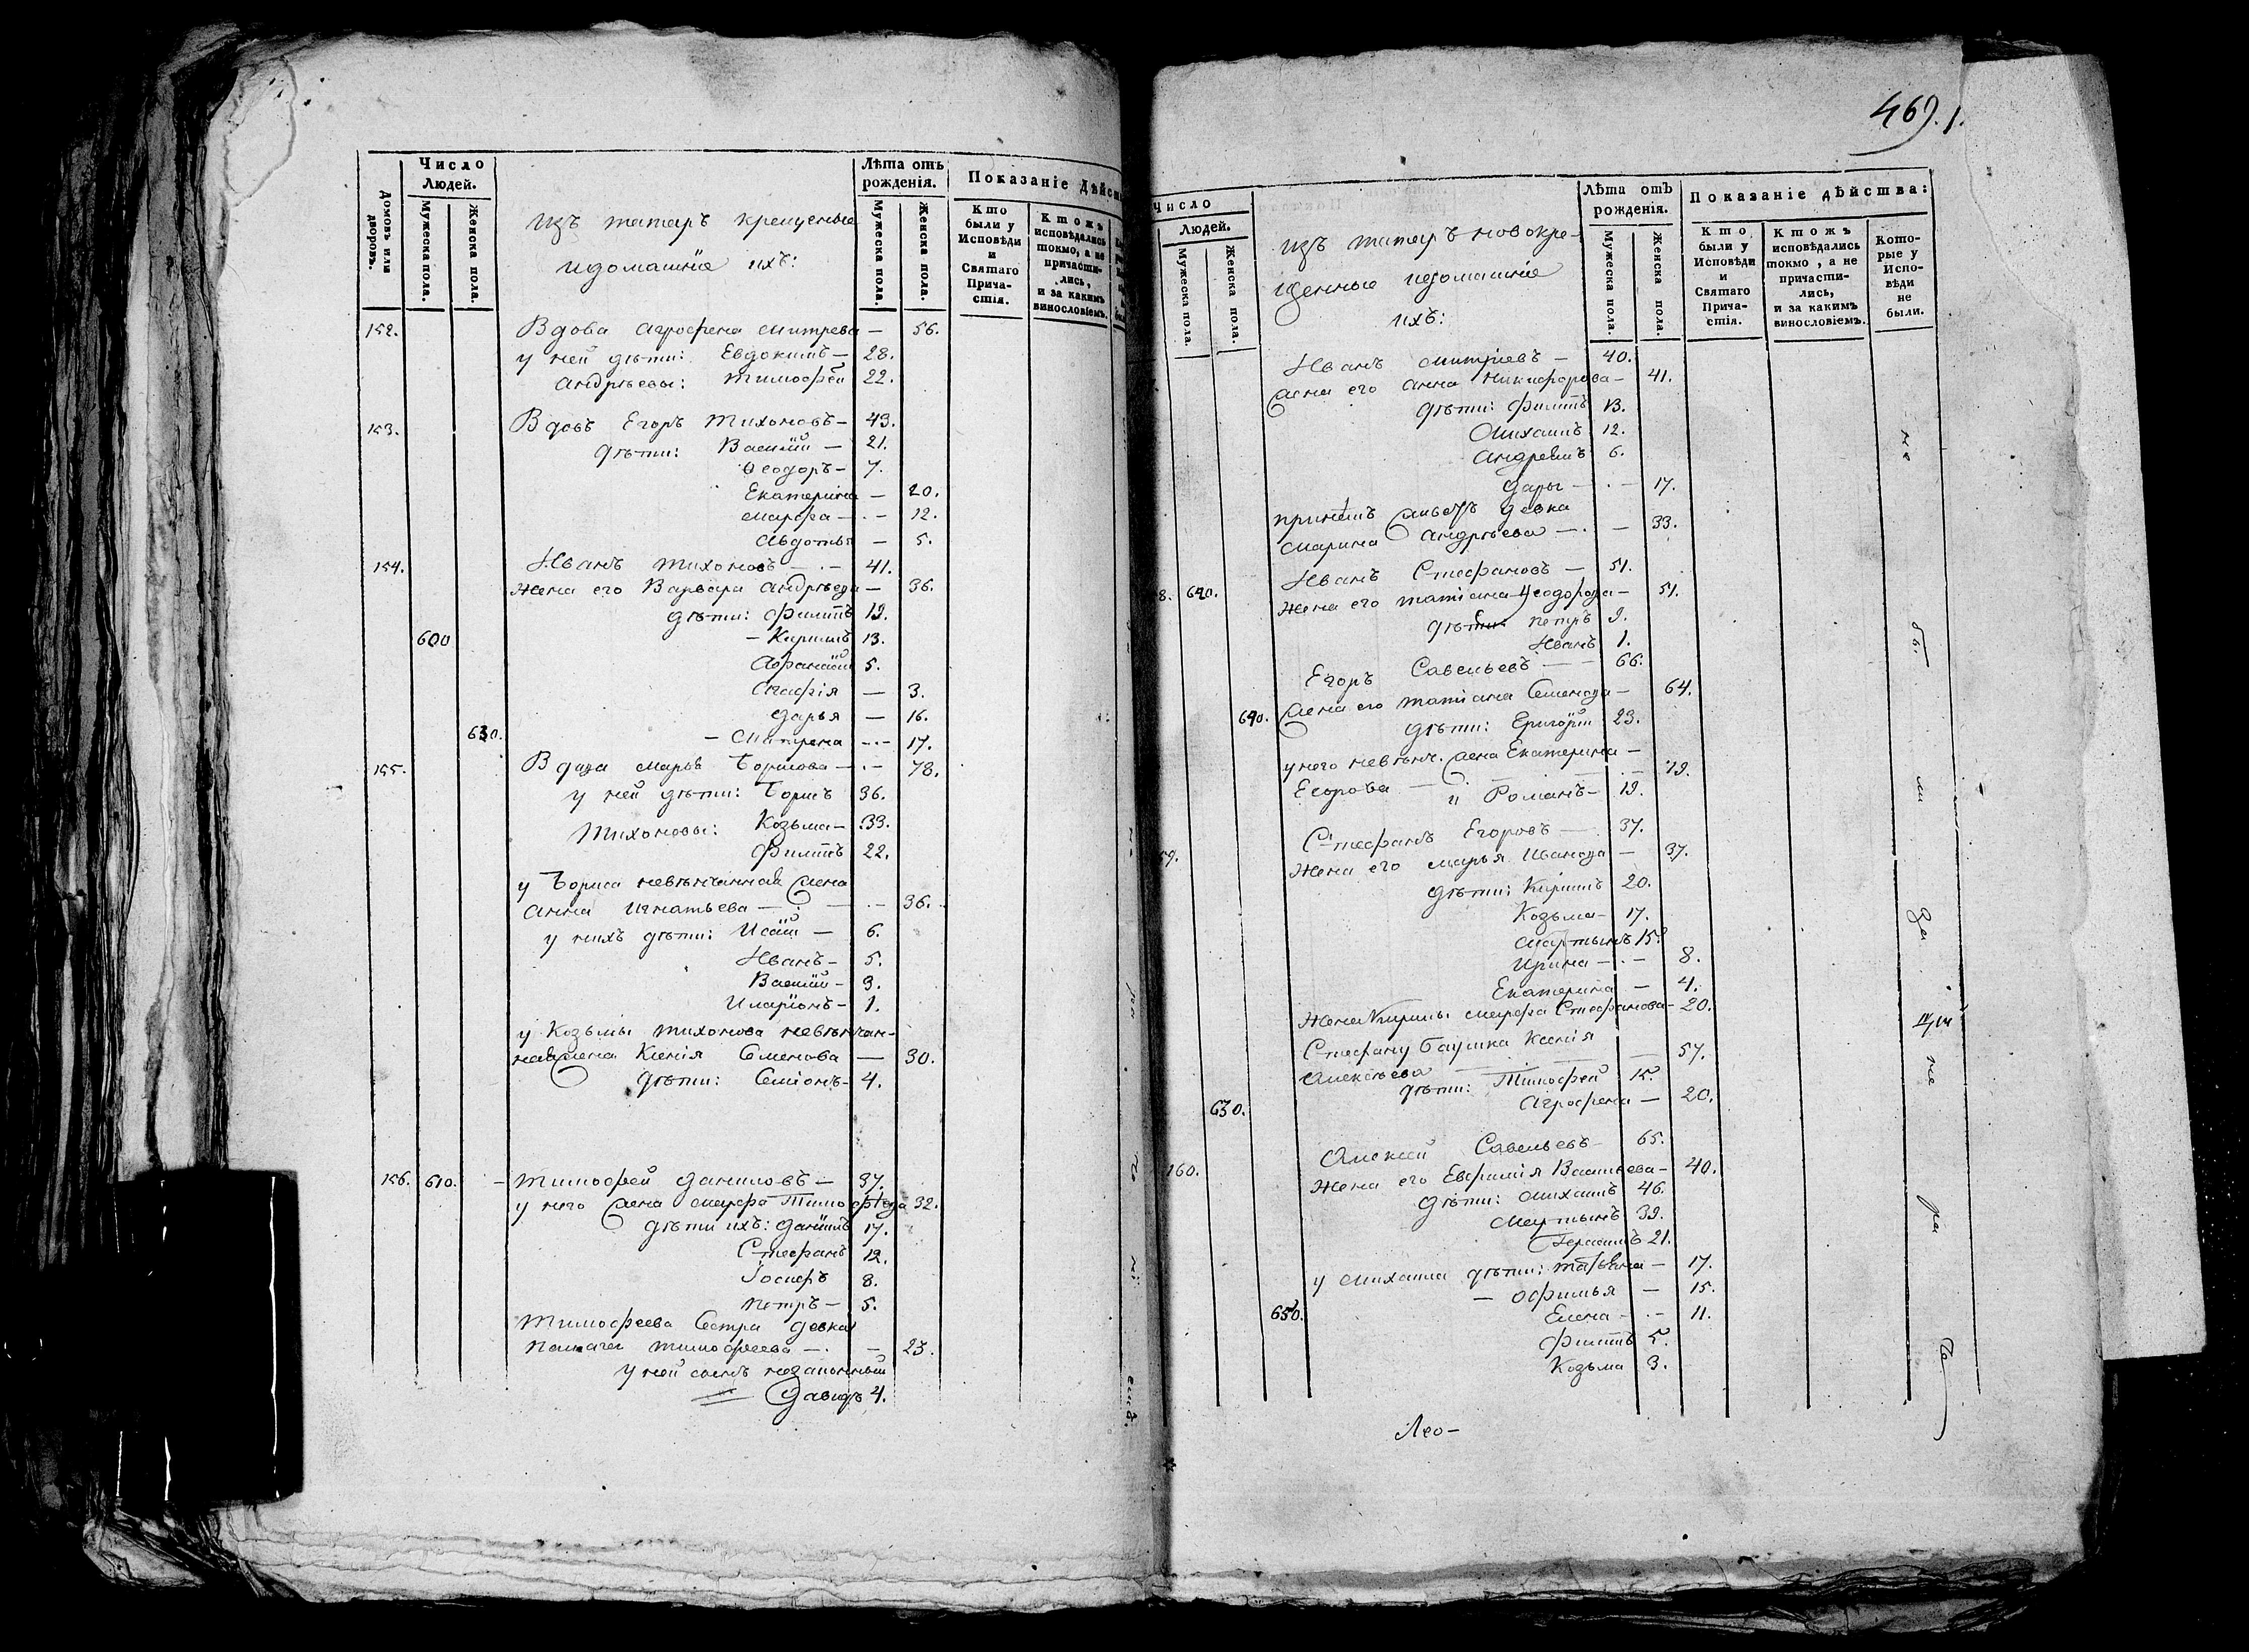 Домовъ или дворовъ.
Число Людей.
Мужеска пола.
Женска пола.
Изъ татаръ крещеные
и домашнiе ихъ:
Лѣта отъ рожденiя.
Мужеска пола.
Женска пола.
Показанiе Дѣйст
Кто были у Исповѣди и Святаго Прича-стiя.
Ктожъ исповѣдались токмо, а не причасти-лись, и за какимъ винословiемъ.
152. Вдова Агрофена Митрева — 56.
у ней дѣти: Евдокимъ — 28.
Андрѣевы: Тимофей 22.
153. Вдовъ Егоръ Тихоновъ — 43.
дѣти: Василiй — 21.
Ѳеодоръ — 7.
Екатерина — 20.
Марфа — 12.
Авдотья — 5.
154. Иванъ Тихоновъ — 41.
Жена его Варвара Андрѣева — 36.
дѣти: Филипъ 19.
600 — Кирилъ 13.
Афанасiй 5.
Агафiя — 3.
Дарья — 16.
630. — Матрена — 17.
155. Вдова Марья Борисова — 78.
у ней дѣти: Борисъ 36.
Тихоновы: Козьма — 33.
Филипъ 22.
у Бориса невѣнчанная жена
Анна Игнатьева — 36.
у нихъ дѣти: Исай — 6.
Иванъ — 5.
Василiй — 3.
Иларiонъ — 1.
у Козьмы Тихонова невѣнчан-
ная жена Ксенiя Семенова — 30.
дѣти: Семiонъ — 4.
156. 610. — Тимофей Даниловъ — 37.
у него жена Марфа Тимофѣева 32.
дѣти ихъ: Данiилъ 17.
Стефанъ 12.
Iосифъ 8.
Петръ — 5.
Тимофеева Сестра девка
Пелагея Тимофеева — 23.
У ней сынъ незаконный
Давидъ 4.
469.
Число
Людей.
Мужеска пола.
Женска пола.
Изъ татаръ новокре-
щенные и домашнiе
ихъ:
Лѣта отъ рожденiя.
Мужеска пола.
Женска пола.
Показанiе дѣйства:
Кто были у Исповѣди и Святаго Прича-стiя.
Ктожъ исповѣдались токмо, а не причасти-лись, и за какимъ винословiемъ.
Кото-рые у Испо-вѣди не были.
Иванъ Митрiевъ — 40.
жена его Анна Никифорова — 41.
дѣти: Филипъ 13.
Михаилъ 12.
Андрей 6.
Дарья — 17.
девка
Марина Андрѣева — 33.
8. 620. Иванъ Стефановъ — 51.
Жена его Татiана Ѳеодорова — 51.
дѣти: Петръ 9.
Иванъ 1.
Егоръ Савельевъ — 66.
640. жена его Татiана Семенова — 64.
дѣти: Григорiй 23.
у него невѣнч. жена Екатерина —
Егорова — 19.
и Романъ — 19.
Стефанъ Егоровъ — 37.
59. Жена его Марья Иванова — 37.
дѣти: Кирилъ 20.
Козьма — 17.
Мартынъ 15.
Ирина — 8.
Екатерина — 4.
Жена Кирилы Марфа Стефанова — 20.
Стефану Ксенiя
Алексѣева — 57.
дѣти: Тимофей 15.
630. Агрофена — 20.
Алексей Савельевъ — 65.
160. Жена его Евфимiя Васильева — 40.
Дѣти: Михаилъ 46.
Мартынъ 39.
Герасимъ 21.
у Михаила дѣти: Татьяна — 17.
— Офимья — 15.
650. Елена — 11.
Филипъ 5.
Козьма 3.
Лео-